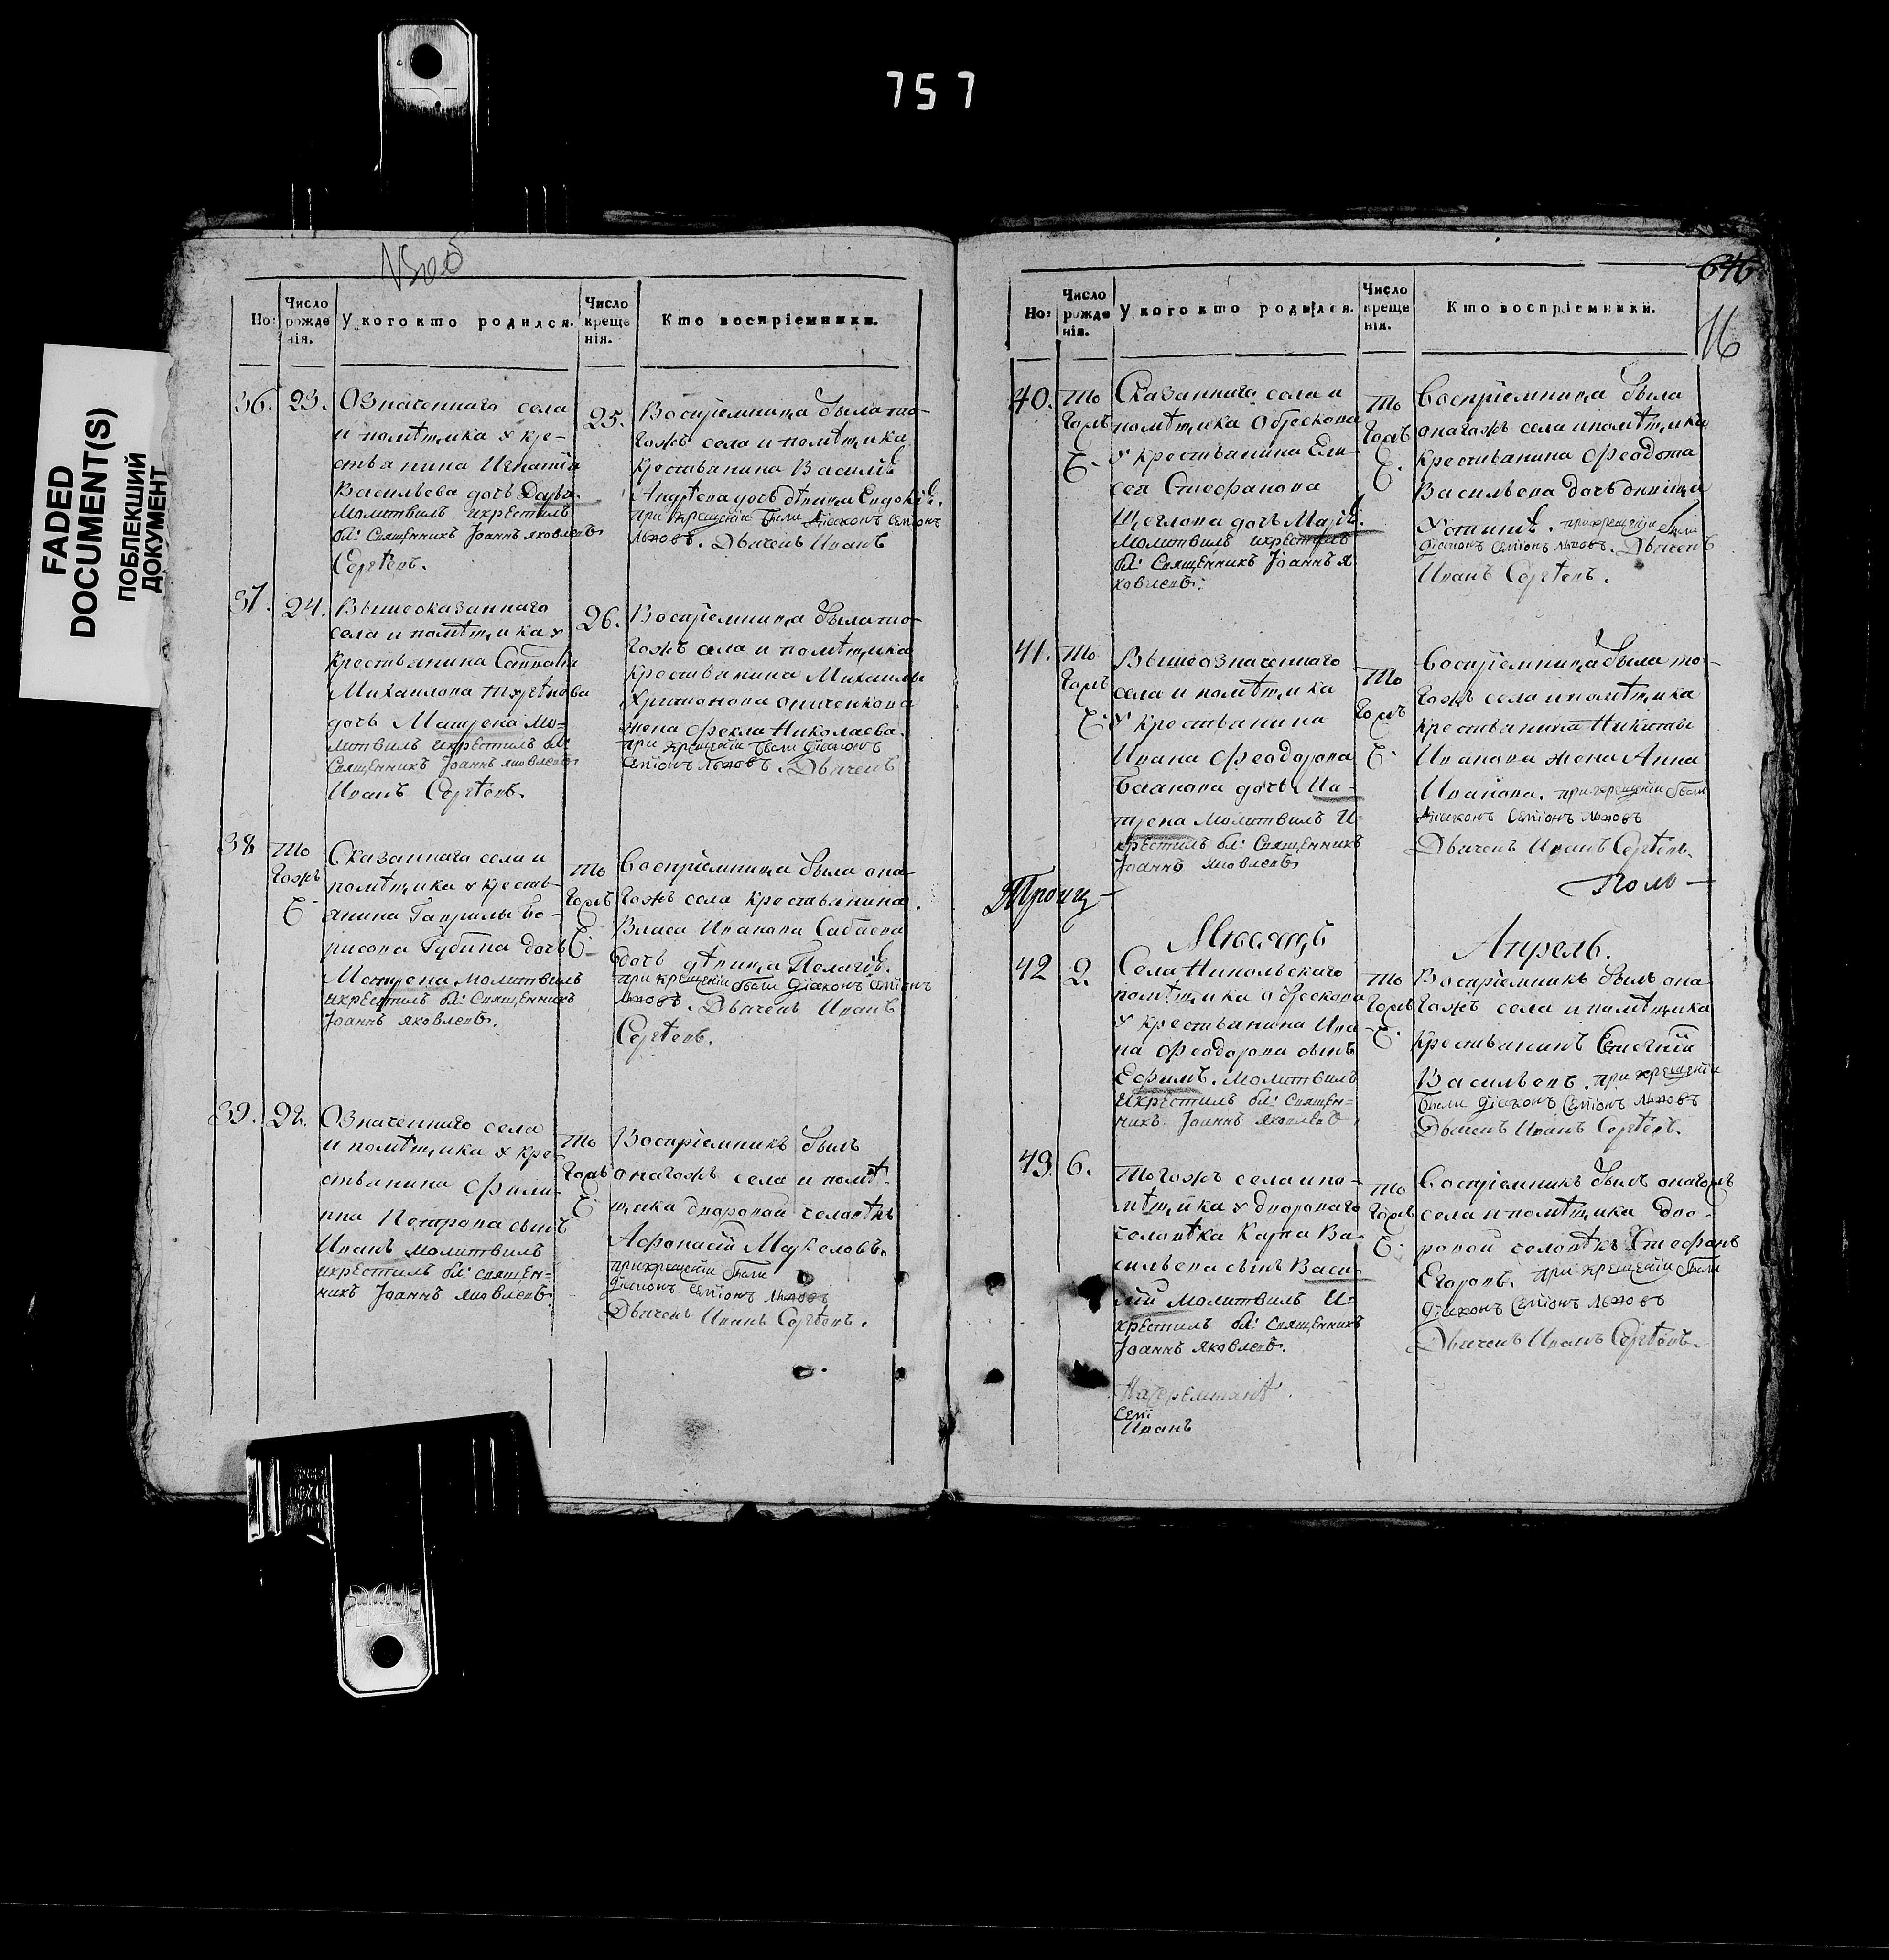 757
FADED
DOCUMENT(S)
ПОБЛЕКШИЙ
ДОКУМЕНТ
646
16
Но:
Число рожде нія.
У кого кто родился.
Число креще нія.
Кто воспріемники.
36. 23.
Означеннаго села
и помѣщика у кре-
стьянина Игнатія
Васильева дочь Дарья.
Молитвилъ икрестилъ
Священникъ Іоаннъ яковлевъ
Сергѣевъ.
25.
Воспріемница была то-
гожъ села и помѣщика
крестьянина Василія
Андрѣева дочь дѣвица Евдокія.
при крещеніи были діаконъ Семіонъ
Львовъ. Дьячекъ Иванъ
37. 24.
Вышесказаннаго
села и помѣщика у
крестьянина
Михаилова
дочь Матрена мо-
литвилъ икрестилъ
Священникъ Іоаннъ яковлевъ
Иванъ Сергѣевъ.
26.
Воспріемница была то-
гожъ села и помѣщика
крестьянина Михаилы
жена Фекла Николаева.
при крещеніи были діаконъ
Семіонъ Львовъ. Дьячекъ
38
то
гожъ
Ч.
Сказаннаго села и
помѣщика у кресть-
янина Гаврилы Бо-
рисова Губина дочь
Матрена молитвилъ
икрестилъ Священникъ
Іоаннъ яковлевъ.
то
гожъ
Ч.
Воспріемница была она-
гожъ села крестьянина
Власа Иванова
дочь дѣвица Пелагія.
при крещеніи были діаконъ Семіонъ
Львовъ. Дьячекъ Иванъ
Сергѣевъ.
39. 28.
Означеннаго села
и помѣщика у кре-
стьянина Фили-
ппа Петрова сынъ
Иванъ молитвилъ
икрестилъ Священ-
никъ Іоаннъ яковлевъ.
то
гожъ
Ч.
Воспріемникъ былъ
онагожъ села и помѣ-
щика дворовой человѣкъ
Афонасій Маркеловъ.
прикрещеніи были
діаконъ Семіонъ Львовъ
Дьячекъ Иванъ Сергѣевъ.
Но:
Число рожде нія.
У кого кто родился.
Число креще нія.
Кто воспріемники.
40.
то
гожъ
Ч.
Сказаннаго села и
помѣщика Обрескова
у крестьянина Ели-
сея Стефанова
Щеглова дочь Марія.
Молитвилъ икрестилъ
Священникъ Іоаннъ Я
ковлевъ.
то
гожъ
Ч.
Воспріемница была
онагожъ села ипомѣщика
крестьянина Феодота
Васильева дочь дѣвица
Устинія. прикрещеніи были
діаконъ Семіонъ Львовъ. Дьячекъ
Иванъ Сергѣевъ.
41.
то
гожъ
Ч.
Вышеозначеннаго
села и помѣщика
у крестьянина
Ивана Феодорова
Баланова дочь Ма-
трена молитвилъ И-
крестилъ Священникъ
Іоаннъ яковлевъ
то
гожъ
Ч.
Воспріемница была то-
гожъ села ипомѣщика
крестьянина Никиты
Иванова жена Анна
Иванова. при крещеніи были
діаконъ Семіонъ Львовъ
Дьячекъ Иванъ Сергѣевъ.
Троиц-
Мѣсяцъ
Апрель.
42 2.
Села Никольскаго
помѣщика Обрескова
у крестьянина Ива
на Феодорова сынъ
Ефимъ. молитвилъ
икрестилъ Священ-
никъ Іоаннъ яковлевъ
то
гожъ
Ч.
Воспріемникъ былъ она
гожъ села и помѣщика
крестьянинъ
Васильевъ. при крещеніи
были діаконъ Семіонъ Львовъ
Дьячекъ Иванъ Сергѣевъ.
43. 6.
Тогожъ села ипо-
мѣщика у двороваго
человѣка Карпа Ва-
сильева сынъ Васи-
лій молитвилъ И-
крестилъ Священникъ
Іоаннъ яковлевъ.
то
гожъ
Ч.
Воспріемникъ былъ онагожъ
села ипомѣщика дво-
ровой человѣкъ Стефанъ
Егоровъ. при крещеніи были
діаконъ Семіонъ Львовъ
Дьячекъ Иванъ Сергѣевъ.
Семі
Иванъ